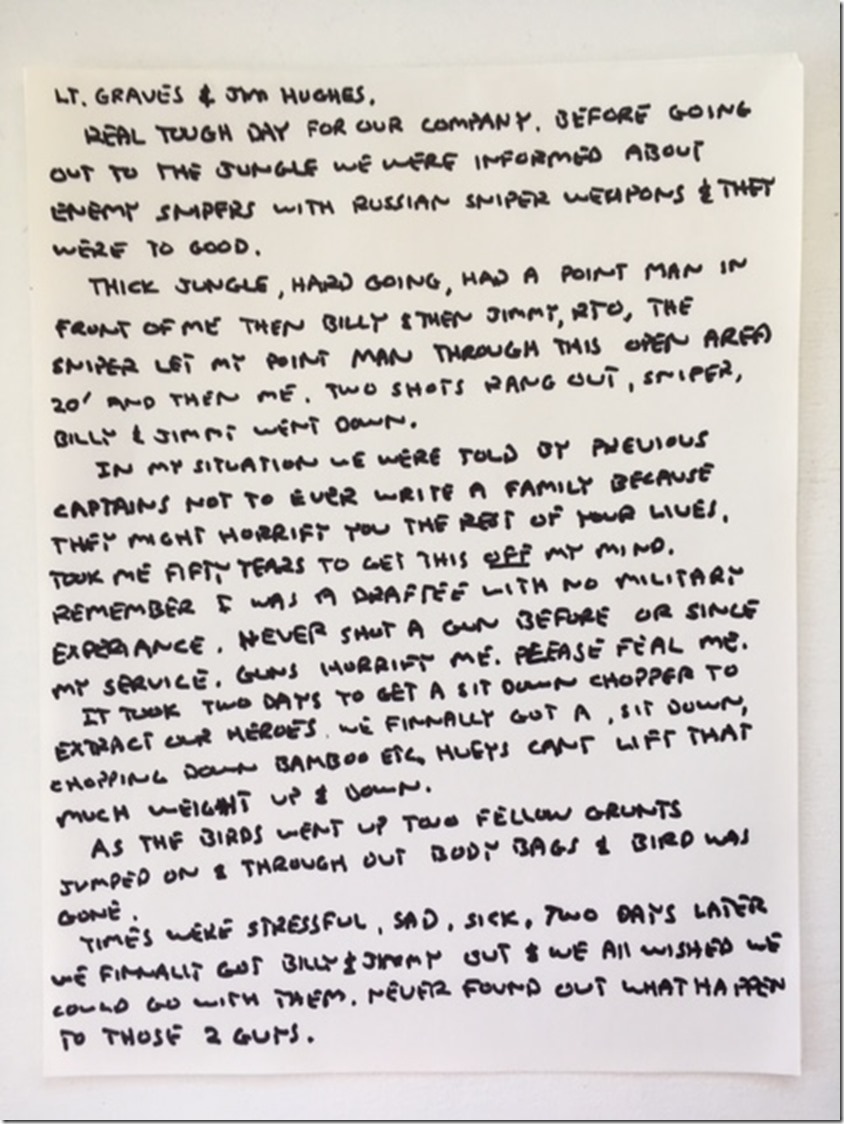 LT. GRAVES & JIM HUGHES,
REAL TOUGH DAY FOR OUR COMPANY. BEFORE GOING
OUT TO THE JUNGLE WE WERE INFORMED ABOUT
ENEMY SNIPERS WITH RUSSIAN SNIPER WEAPONS & THEY
WERE TO GOOD.
THICK JUNGLE, HARD GOING, HAD A POINT MAN IN
FRONT OF ME THEN BILLY & THEN JIMMY, RTO, THE
SNIPER LET MY POINT MAN THROUGH THIS OPEN AREA
20' AND THEN ME. TWO SHOTS RANG OUT, SNIPER,
BILLY & JIMMY WENT DOWN.
IN MY SITUATION WE WERE TOLD BY PREVIOUS
CAPTAINS NOT TO EVER WRITE A FAMILY BECAUSE
THEY MIGHT HORRIFY YOU THE REST OF YOUR LIVES.
TOOK ME FIFTY YEARS TO GET THIS OFF MY MIND.
REMEMBER I WAS A DRAFTEE WITH NO MILITARY
EXPERIANCE. NEVER SHOT A GUN BEFORE OR SINCE
MY SERVICE. GUNS HORRIFY ME. PLEASE FEAL ME.
IT TOOK TWO DAYS TO GET A SIT DOWN CHOPPER TO
EXTRACT OUR HEROES. WE FINNALLY GOT A, SIT DOWN,
CHOPPING DOWN BAMBOO ETC, HUEYS CANT LIFT THAT
MUCH WEIGHT UP & DOWN.
AS THE BIRDS WENT UP TWO FELLOW GRUNTS
JUMPED ON & THROUGH OUT BODY BAGS & BIRD WAS
GONE.
TIMES WERE STRESSFUL, SAD, SICK, TWO DAYS LATER
WE FINNALLY GOT BILLY & JIMMY OUT & WE All WISHED WE
COULD GO WITH THEM. NEVER FOUND OUT WHAT HAPPEN
TO THOSE 2 GUYS.